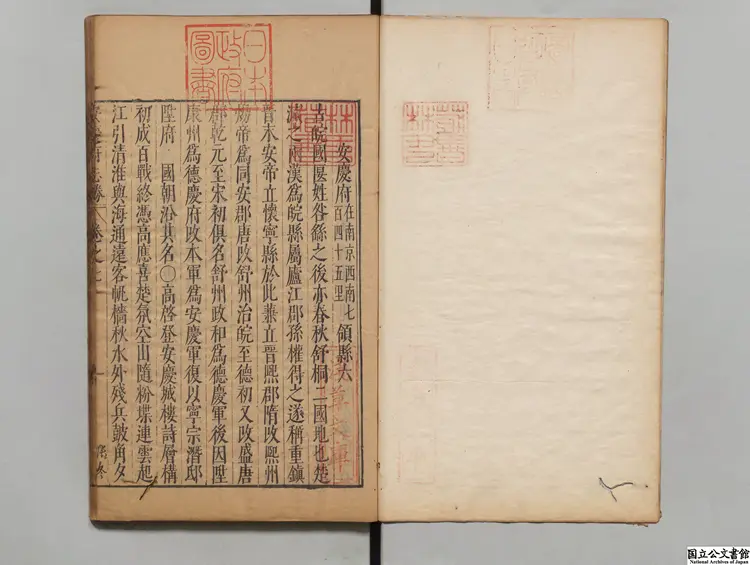 安慶府 在南京西南七百四十五里 領縣六
古皖國偃姓咎繇之後亦春秋舒桐二國地也楚
滅之兩漢爲皖縣屬廬江郡孫權得之遂稱重鎮
晉末安帝立懷寧縣於此兼立晉熙郡隋改熙州
煬帝爲同安郡唐改舒州治皖至德初又改盛唐
郡乾元至宋初俱名舒州政和爲德慶軍後因陞
康州爲德慶府改本軍爲安慶軍復以寧宗潛邸
陞府 國朝沿其名〇高啓登安慶城樓詩層構
初成百戰終憑高應喜楚氛空山隨粉堞連雲起
江引清淮與海通遠客帆檣秋水外殘兵鼓角夕
日本政府圖書
国立公文書館
National Archives of Japan